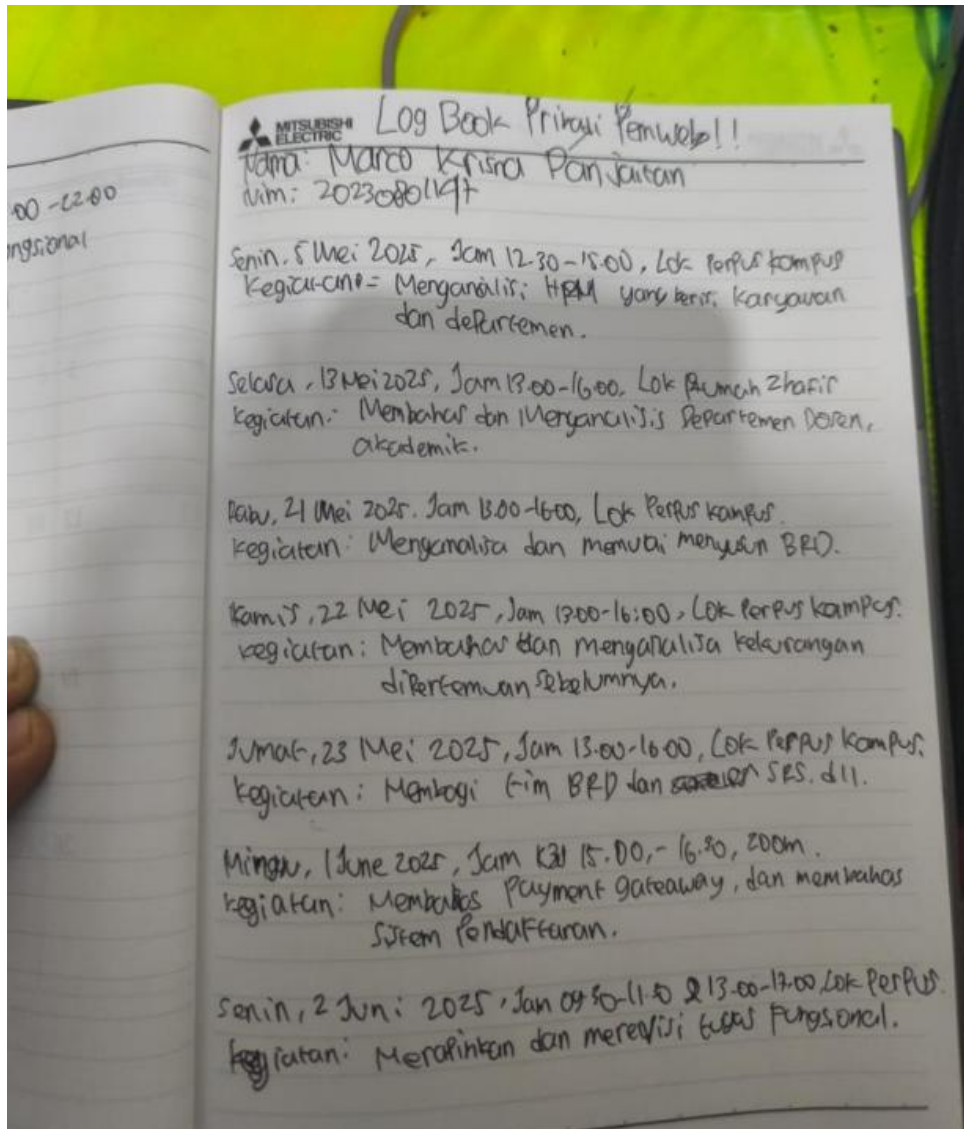 .00 -22.00
ngsional
MITSUBISHI ELECTRIC
Log Book Pribadi Pemweb!!
Nama: Marco Krisna Panjaitan
Nim:
Senin, 5 Mei 2025, Jam 12.30-15.00, Lok Perpus kampus
Kegiatan: Menganalisi HRM yang berisi Karyawan
dan departemen.
Selasa, 13 Mei 2025, Jam 13.00-16.00, Lok Rumah Zhafir
Kegiatan: Membahas dan Menganalisis Departemen Dosen,
akademik.
Rabu, 21 Mei 2025. Jam 13.00-1600, Lok Perpus kampus.
Kegiatan: Menganalisa dan memulai menyusun BRD.
Kamis, 22 Mei 2025, Jam 13.00-16:00, Lok Perpus kampus.
Kegiatan: Membahas dan menganalisa kekurangan
dipertemuan sebelumnya.
Jumat, 23 Mei 2025, Jam 13.00-16.00, Lok Perpus Kampus.
Kegiatan: Membagi tim BRD dan SRS. dll.
Mingu, 1 June 2025, Jam 15.00,- 16.30, zoom.
Kegiatan: Membahas Payment gateaway, dan membahas
Sistem Pendaftaran.
Senin, 2 Juni 2025, Jam & 13.00-17.00 Lok Perpus.
Kegiatan: Merapinkan dan merevisi tugas Fungsional.